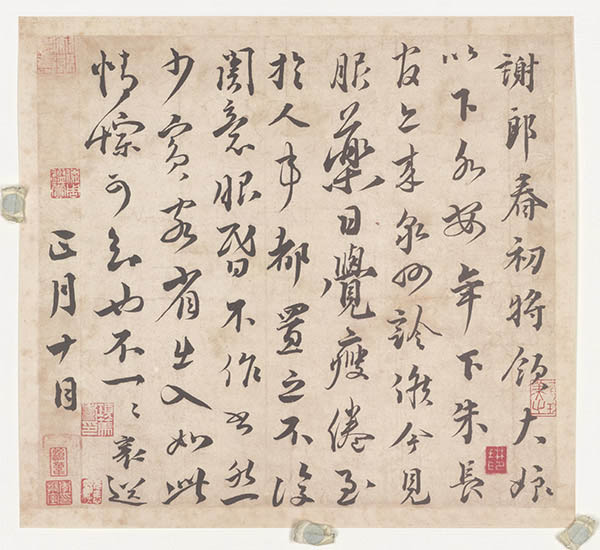 謝郎春初將領大娘
以下各安年下朱長
官亦來泉州診候今見
服藥日覺瘦倦至
於人事都置之不復
關意眼昏不作書然
少賓客省出入如此
情悰可知也不一〻襄送
正月十日